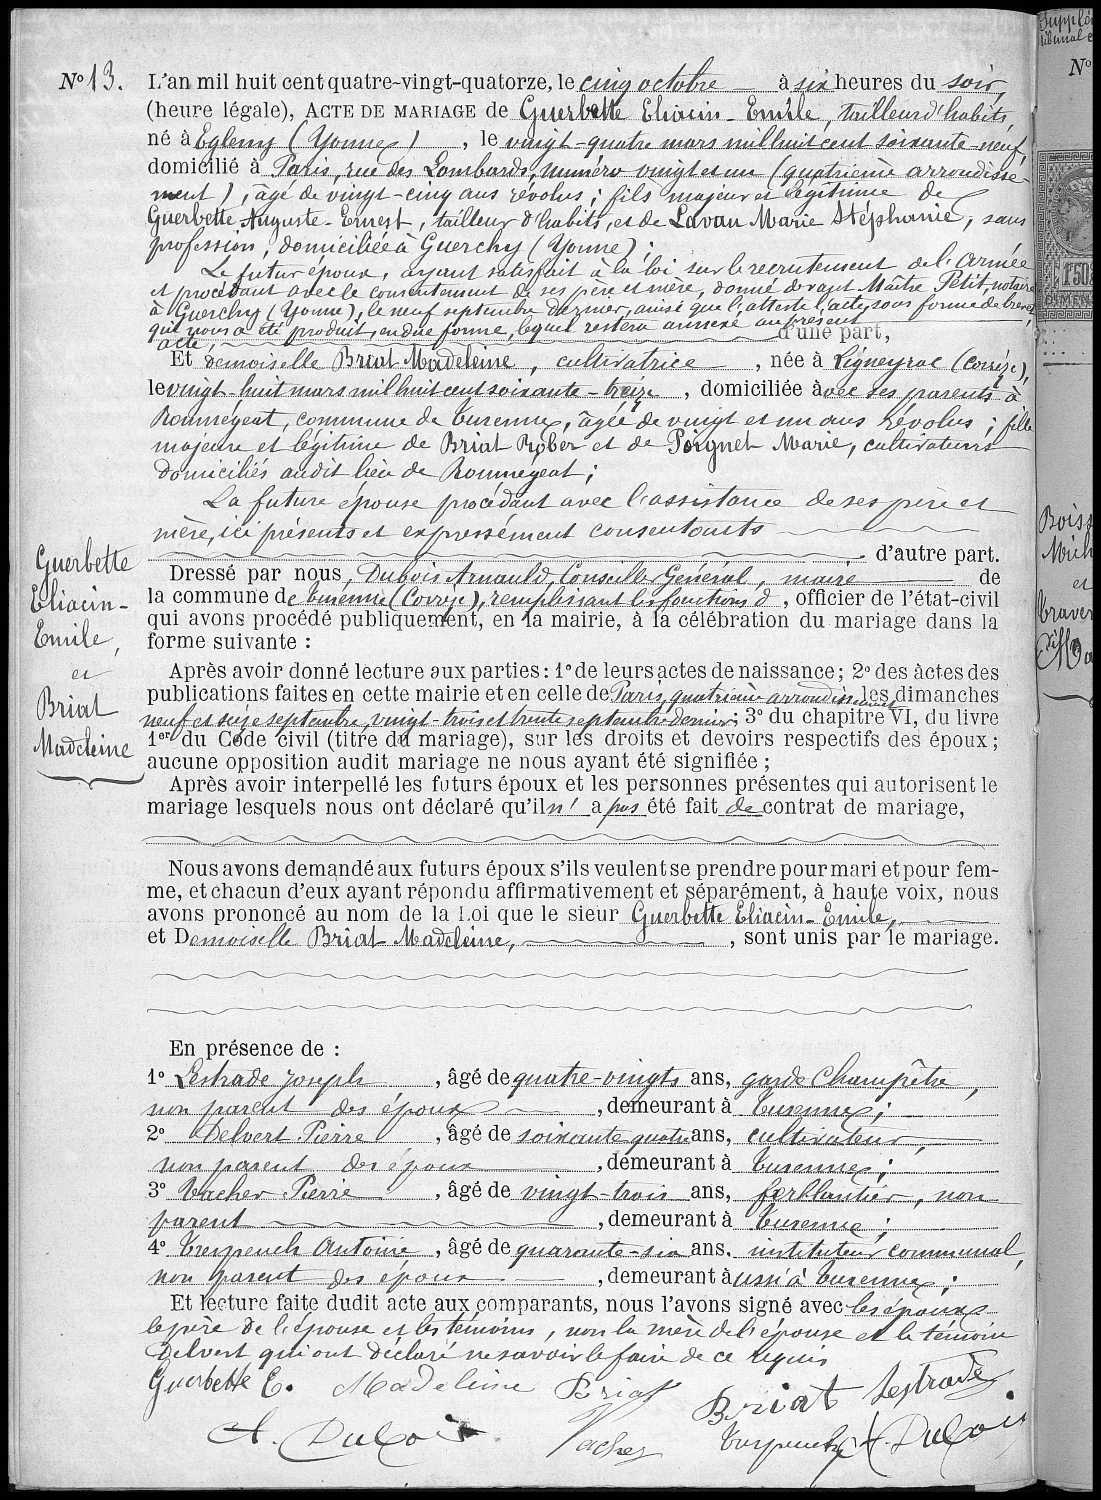 N° 13.
L'an mil huit cent quatre-vingt-quatorze, le cinq octobre à six heures du soir,
(heure légale), ACTE DE MARIAGE de Guerbette Eliacin-Emile, tailleur d'habits,
né à Egleny (Yonne), le vingt-quatre mars mil huit cent soixante-neuf,
domicilié à Paris, rue des Lombards, numéro vingt et un (quatrième arrondisse-
ment), âgé de vingt-cinq ans révolus ; fils majeur et légitime de
Guerbette Auguste-Ernest, tailleur d'habits, et de Lavau Marie Stéphanie, sans
profession, domiciliée à Guerchy (Yonne) ;
Le futur époux, ayant satisfait à la loi sur le recrutement de l'Armée
et procédant avec le consentement de ses père et mère, donné devant Maître Petit, notaire
à Guerchy (Yonne), le neuf septembre dernier, ainsi que l'atteste l'acte, sous forme de brevet,
qui nous a été produit, en due forme, lequel restera annexé au présent
acte, d'une part,
Et demoiselle Briat Madeleine, cultivatrice, née à Ligneyrac (Corrèze),
le vingt-huit mars mil huit cent soixante-treize, domiciliée avec ses parents à
Roumégeat, commune de Turenne, âgée de vingt et un ans révolus ; fille
majeure et légitime de Briat Rober et de Poignet Marie, cultivateurs
domiciliés audit lieu de Roumegeat ;
La future épouse procédant avec l'assistance de ses père et
mère, ici présents et expressément consentants
d'autre part.
Dressé par nous, Dubois Arnauld, Conseiller Général, maire de
la commune de Turenne (Corrèze), remplissant les fonctions d', officier de l'état-civil
qui avons procédé publiquement, en la mairie, à la célébration du mariage dans la
forme suivante :
Guerbette
Eliacin-
Emile,
et
Briat
Madeleine
Après avoir donné lecture aux parties : 1° de leurs actes de naissance ; 2° des àctes des
publications faites en cette mairie et en celle de Paris, quatrième arrondissement les dimanches
neuf et seize septembre, vingt-trois et trente septembre dernier ; 3° du chapitre VI, du livre
1er du Code civil (titre du mariage), sur les droits et devoirs respectifs des époux ;
aucune opposition audit mariage ne nous ayant été signifiée ;
Après avoir interpellé les futurs époux et les personnes présentes qui autorisent le
mariage lesquels nous ont déclaré qu'il n'a pas été fait de contrat de mariage,
Nous avons demandé aux futurs époux s'ils veulent se prendre pour mari et pour fem-
me, et chacun d'eux ayant répondu affirmativement et séparément, à haute voix, nous
avons prononcé au nom de la Loi que le sieur Guerbette Eliacin-Emile,
et Demoiselle Briat Madeleine, , sont unis par le mariage.
En présence de :
1° Lestrade Joseph, âgé de quatre-vingts ans, garde Champêtre,
non parent des époux, demeurant à Turenne ;
2° Delvert Pierre, âgé de soixante quatre ans, cultivateur,
non parent des époux, demeurant à Turenne ;
3° Vacher Pierre, âgé de vingt-trois ans, ferblantier, non
parent, demeurant à Turenne ;
4° Trespeuch Antoine, âgé de quarante-six ans. instituteur communal,
non parent des époux, demeurant aussi à Turenne ;
Et lecture faite dudit acte aux comparants, nous l'avons signé avec les époux
le père de l'épouse et les témoins, non la mère de l'épouse et le témoin
Delvert qui ont déclaré ne savoir le faire de ce requis
Guerbette E. Madeleine Briat Briat Lestrade
A. Dubois Vacher Trespeuch A. Dubois
Supplé
tribunal c
N°
1F50
DIMEN
Boiss
Mich
et
Traver